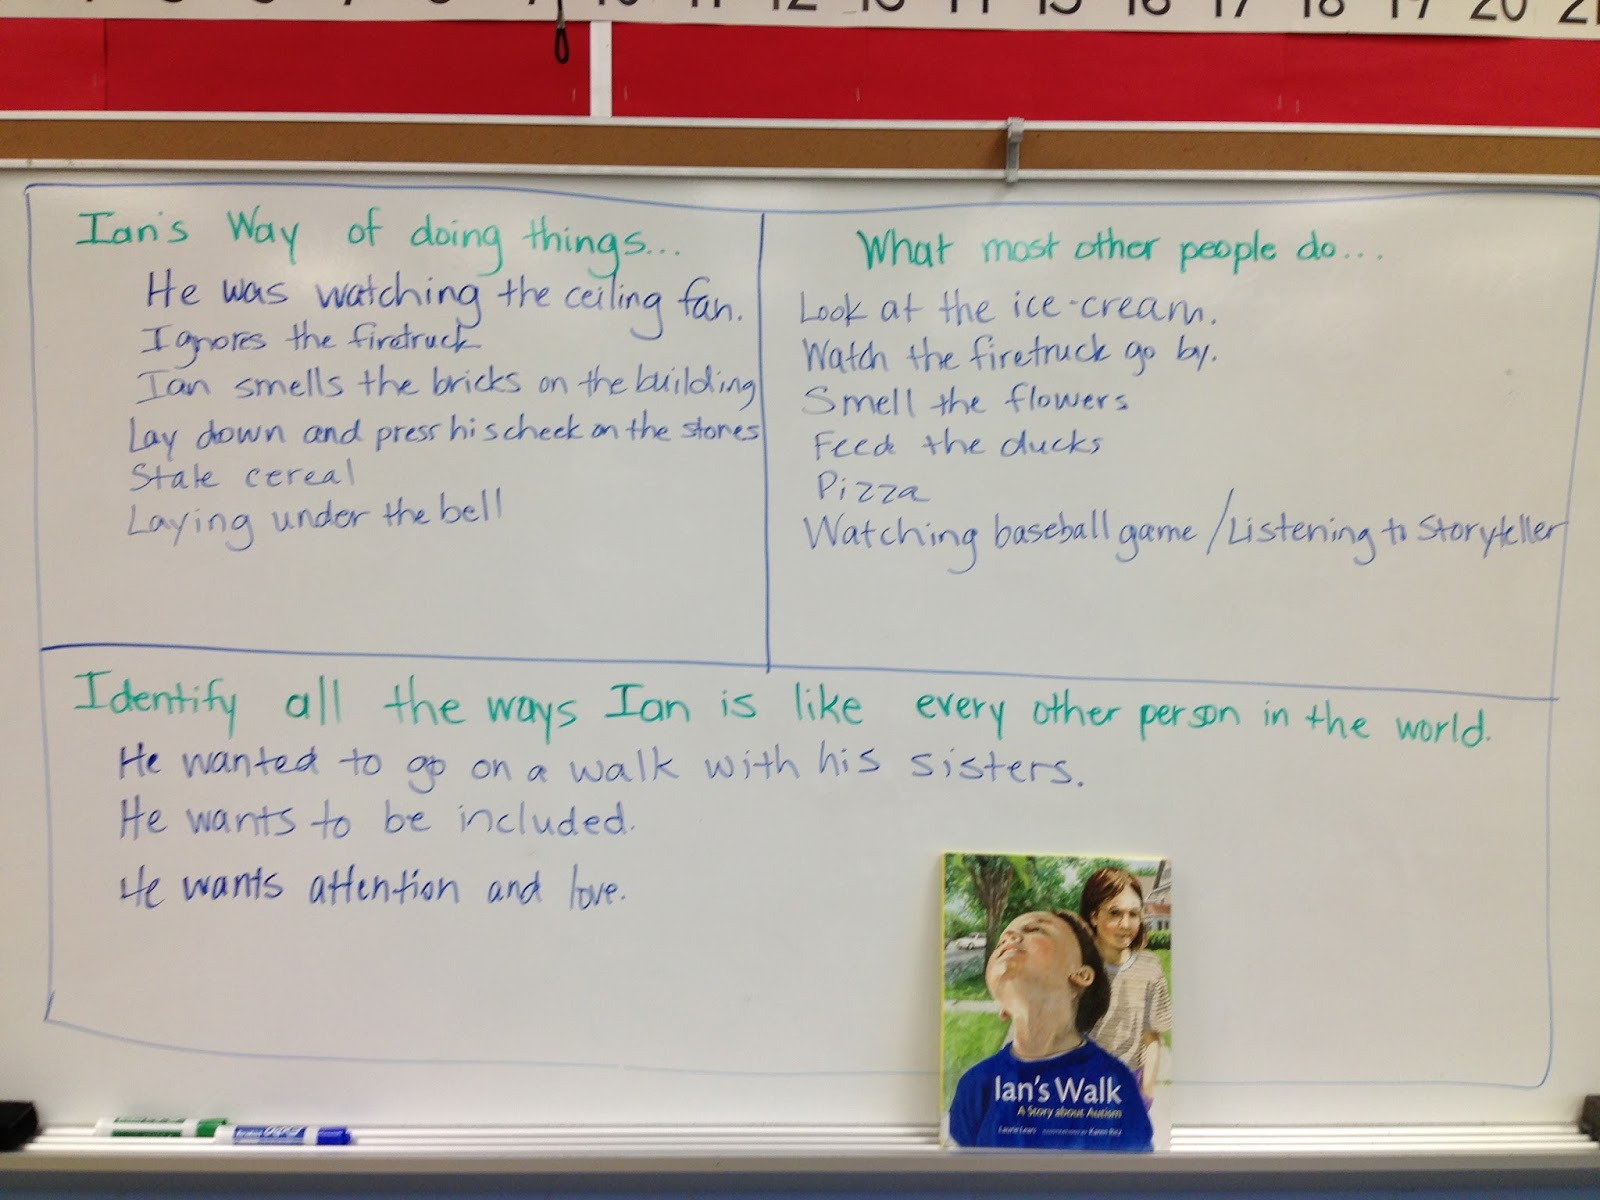 10 11 12 13 14 15 16 17 18 19 20 21
Ian's Way of doing things...
He was watching the ceiling fan.
Ignores the firetruck
Ian smells the bricks on the building
Lay down and press his cheek on the stones
Stale cereal
Laying under the bell
What most other people do...
Look at the ice-cream.
Watch the firetruck go by.
Smell the flowers
Feed the ducks
Pizza
Watching baseball game / Listening to Storyteller
Identify all the ways Ian is like every other person in the world.
He wanted to go on a walk with his sisters.
He wants to be included.
He wants attention and love.
Ian's Walk
A Story about Autism
Laurie Lears